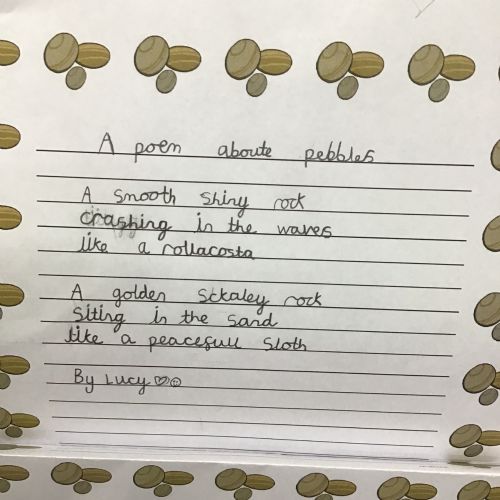 A poem aboute pebbles
A smooth shiny rock
crashing in the waves
like a rollacosta
A golden sckaley rock
siting in the sand
like a peacefull sloth
By Lucy♡☺